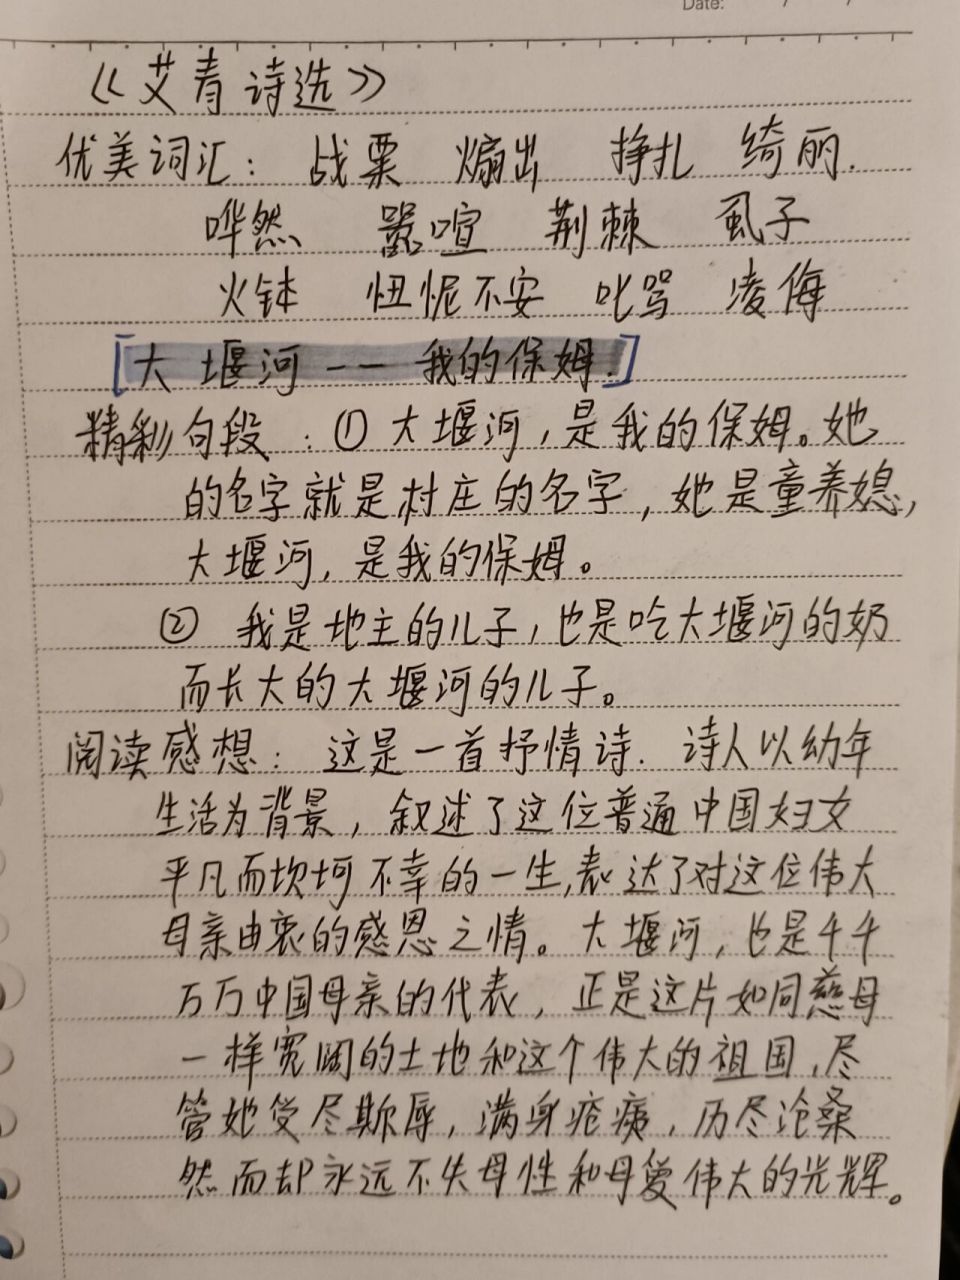 Date: / /
《艾青诗选》
优美词汇：战栗 煽出 挣扎 绮丽.
哗然 嚣喧 荆棘 虱子
火钵 忸怩不安 叱骂 凌侮
[大堰河——我的保姆.]
精彩句段：① 大堰河，是我的保姆。她
的名字就是村庄的名字，她是童养媳，
大堰河，是我的保姆。
② 我是地主的儿子，也是吃大堰河的奶
而长大的大堰河的儿子。
阅读感想：这是一首抒情诗. 诗人以幼年
生活为背景，叙述了这位普通中国妇女
平凡而坎坷不幸的一生,表达了对这位伟大
母亲由衷的感恩之情。大堰河，也是千千
万万中国母亲的代表，正是这片如同慈母
一样宽阔的土地和这个伟大的祖国,尽
管她受尽欺辱，满身疮痍，历尽沧桑
然而却永远不失母性和母爱伟大的光辉。